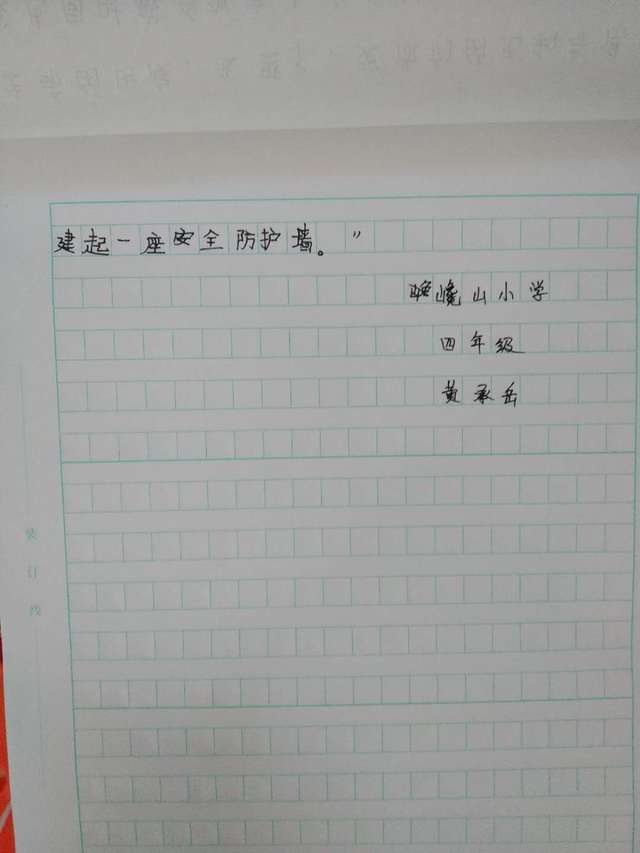 建起一座安全防护墙。”
峣山小学
四年级
黄承岳
装订线